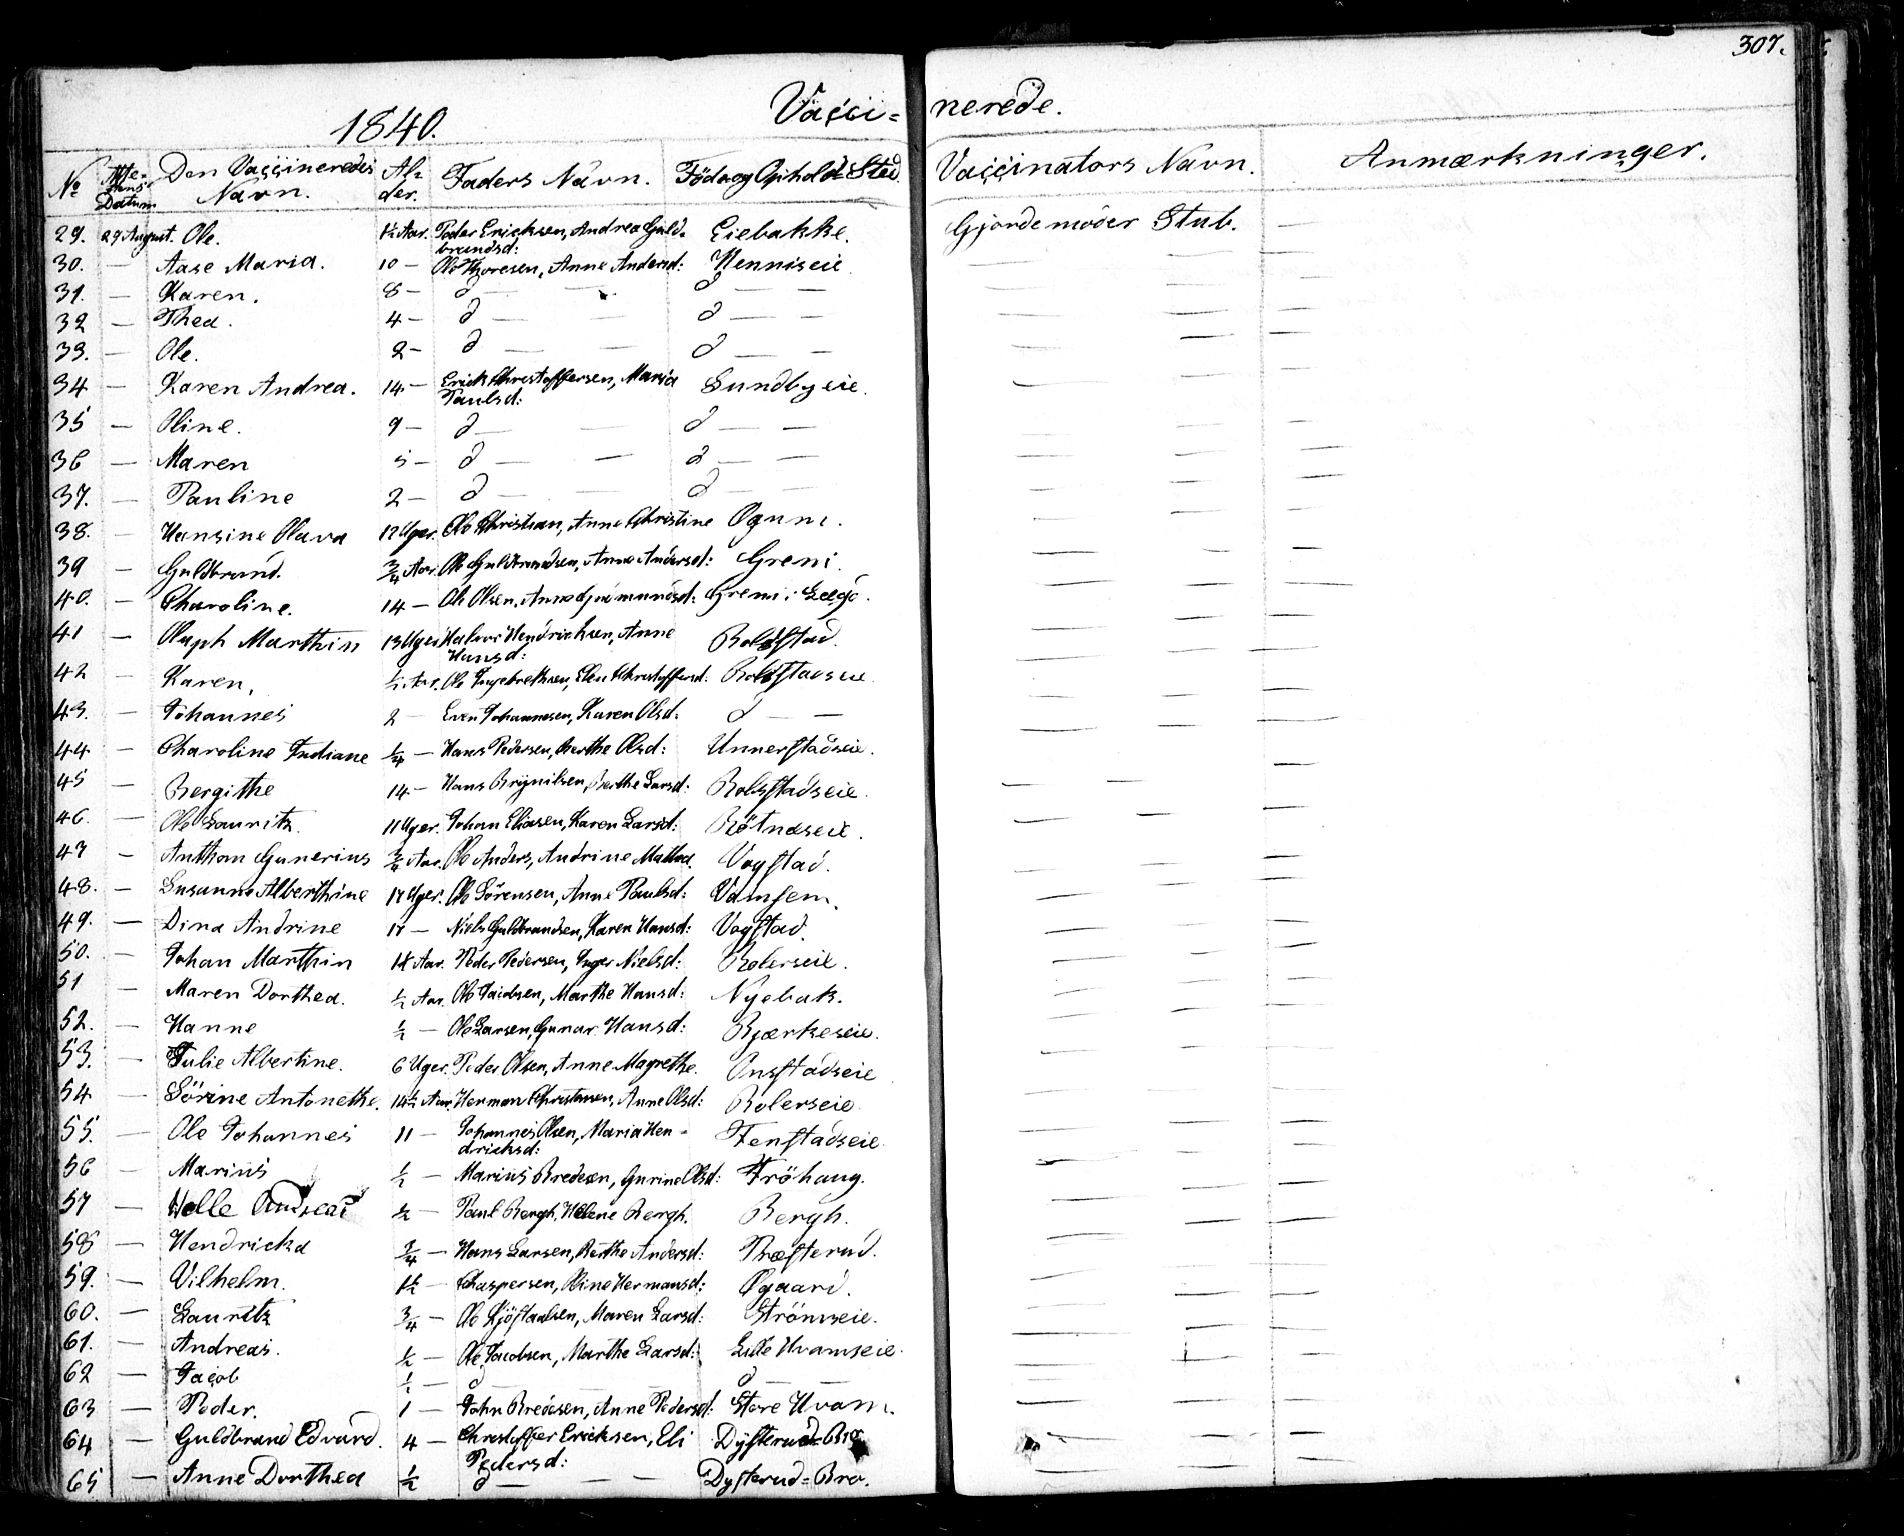 307.
1840. Vacci= nerede.
No Attestens Datum Den Vaccineredes Navn. Alder. Faders Navn. Föde og Ophold Sted. Vaccinators Navn. Anmærkninger.
29. 29 August. Ole. 1½ Aar. Peder Ericksen, Andrea Guld= Eiebakke. Gjordemoder Stub. —
brandsd:
30. — Aase Maria. 10 — Ole Thoresen, Anne Andersd: Henniseie — — —
31. — Karen. 8 — d — — d — — — — —
32 — Thea. 4 — d — — d — — — — —
33. — Ole. 2 — d — — d — — — — —
34 — Karen Andrea. 14 — Erick Christoffersen, Maria Sundbyeie. — — —
Paulsd:
35 — Oline. 9 — d — — d — — — — —
36 — Maren 5 — d — — d — — — — —
37. — Pauline 2 — d — — d — — — — —
38. — Hansine Olava 12 Uger. Ole Christian, Anne Christine Ognni. — — —
39 — Guldbrand. ¾ Aar. Ole Guldbrandsen, Anne Andersd: Greni. — — —
40. — Charoline. 14 — Ole Olsen, Anne Gudmundsd: Greni — — —
41 — Olaph Marthin 13 Uger Halvor Hendricksen, Anne Rolstad. — — —
Hansd:
42 — Karen. ½ Aar. Ole Ingebrethsen, Elen Christoffersd: Rolstadseie — — —
43. — Johannes 2 — Even Johannesen, Karen Olsd: d — — — — —
44 — Charoline Indiane ¼ — Hans Pedersen, Berthe Olsd: Unnerstadseie. — — —
45 — Bergithe 14 — Hans Brynilsen, Berthe Larsd: Rolstadseie. — — —
46. — Ole Lauritz. 11 Uger. Johan Eliasen, Karen Larsd: Rötnæseie. — — —
47 — Anthon Gunerius ¾ Aar. Ole Anders, Andrine Mathea. Vogstad. — — —
48. — Susanne Alberthine 17 Uger. Ole Sörensen, Anne Paulsd: Vamsem. — — —
49. — Dina Andrine 17 — Niels Guldbrandsen, Karen Hansd: Vogstad. — — —
50. — Johan Marthin 1¼ Aar. Peder Pedersen, Inger Nielsd: Rolerseie. — — —
51 — Maren Dorthea. ½ Aar. Ole Jacobsen, Marthe Hansd: Nyebak. — — —
52. — Hanne ½ — Ole Larsen, Gunor Hansd: Bjærkeseie. — — —
53. — Julie Albertine. 6 Uger. Peder Olsen, Anne Magrethe. Onstadseie — — —
54 — Sörine Antonethe. 14½ Aar Herman Christensen, Anne Olsd: Rolerseie. — — —
55. — Ole Johannes 11 — Johannes Olsen, Maria Hen= Fenstadseie. — — —
dricksd:
56 — Marius ½ — Marius Bredesen, Gurine Olsd: Fröhaug. — — —
57 — Helle Andreas ½ — Paul Bergh, Helene Bergh. Bergh. — — —
58 — Hendricka ¾ — Hans Larsen, Berthe Andersd: Præsterud. — — —
59. — Vilhelm. 1½ — Chaspersen, Oline Hermansd: Ogaard. — — —
60. — Lauritz ¾ — Ole Kjöstadsen, Maren Larsd: Strömseie. — — —
61. — Andreas. ½ — Ole Jacobsen, Marthe Larsd: Lille Hvamseie. — — —
62 — Jacob ½ — d — — d — — — — —
63 — Peder. 1 — John Bredesen, Anne Pedersd: Store Hvam. — — —
64 — Guldbrand Edvard. 4 — Christoffer Ericksen, Eli Dysterud=Bro — — —
Pedersd:
65 — Anne Dorthea ½ d — — — Dysterud=Bro. — — —